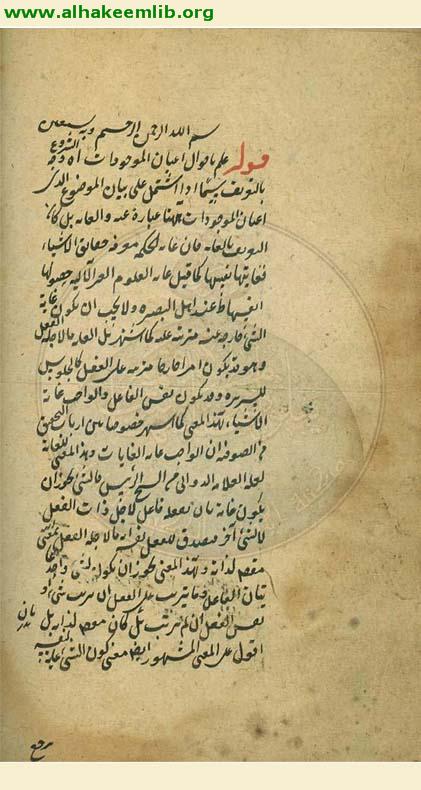 www.alhakeemlib.org
بسم الله الرحمن الرحيم وبه نستعين
قوله علم باحوال اعيان الموجودات اه وجه الشروع
بالتعريف سيما اذا اشتمل على بيان الموضوع الذى
اعيان الموجودات ههنا عبارة عنه والغاية بل كان
التعريف بالغاية فان غاية الحكمة معرفة حقايق الاشياء
فغايتها نفسها كما قيل غاية العلوم الغير الآلية حصولها
انفسها عند اهل البصيرة ولا يجب ان يكون غاية
الشئ خارجة عنه مترتبة عليه كما اشتهر بل الغاية ما لاجله الفعل
وهو قد يكون امرا خارجا مترتبا على الفعل كالجلوس
للسرير وقد يكون نفس الفاعل والواجب غاية
الاشياء بهذا المعنى كما اشتهر خصوصا بين ارباب التحقيق
من الصوفية ان الواجب غاية الغايات وهذا المعنى للغاية
نقله العلامة الدوانى من الشيخ الرئيس فالشئ يجوز ان
يكون غاية بان يفعله فاعل لاجل ذات الفعل
لا لشئ آخر فيصدق للفعل نفسه ما لاجله الفعل بمعنى
مقصود لذاته وبهذا المعنى يجوز ان يكون لشئ واحد
غايتان الفاعل وما يترتب على الفعل ان ترتب شئ او
نفس الفعل ان لم يترتب بل كان مقصودا لذاته بل
اقول على المعنى المشهور ايضا معنى كون الشئ غاية لنفسه